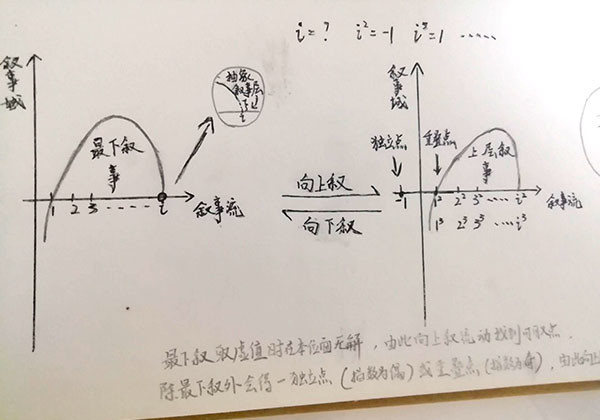 i=? i²=-1 i⁴=1 ......
叙事域
最下叙事
抽象
叙事层
i
1 2 3 ------ i
叙事流
向上叙
向下叙
叙事域
独立点
重叠点
上层叙事
-1 1² 2² 3² ...... i²
1³ 2³ 3³ ...... i³
叙事流
最下叙取虚值时在本位面无解,由此向上叙流动找到可取点.
除最下叙外会得一独立点(指数为偶)或重叠点(指数为奇),由此向上